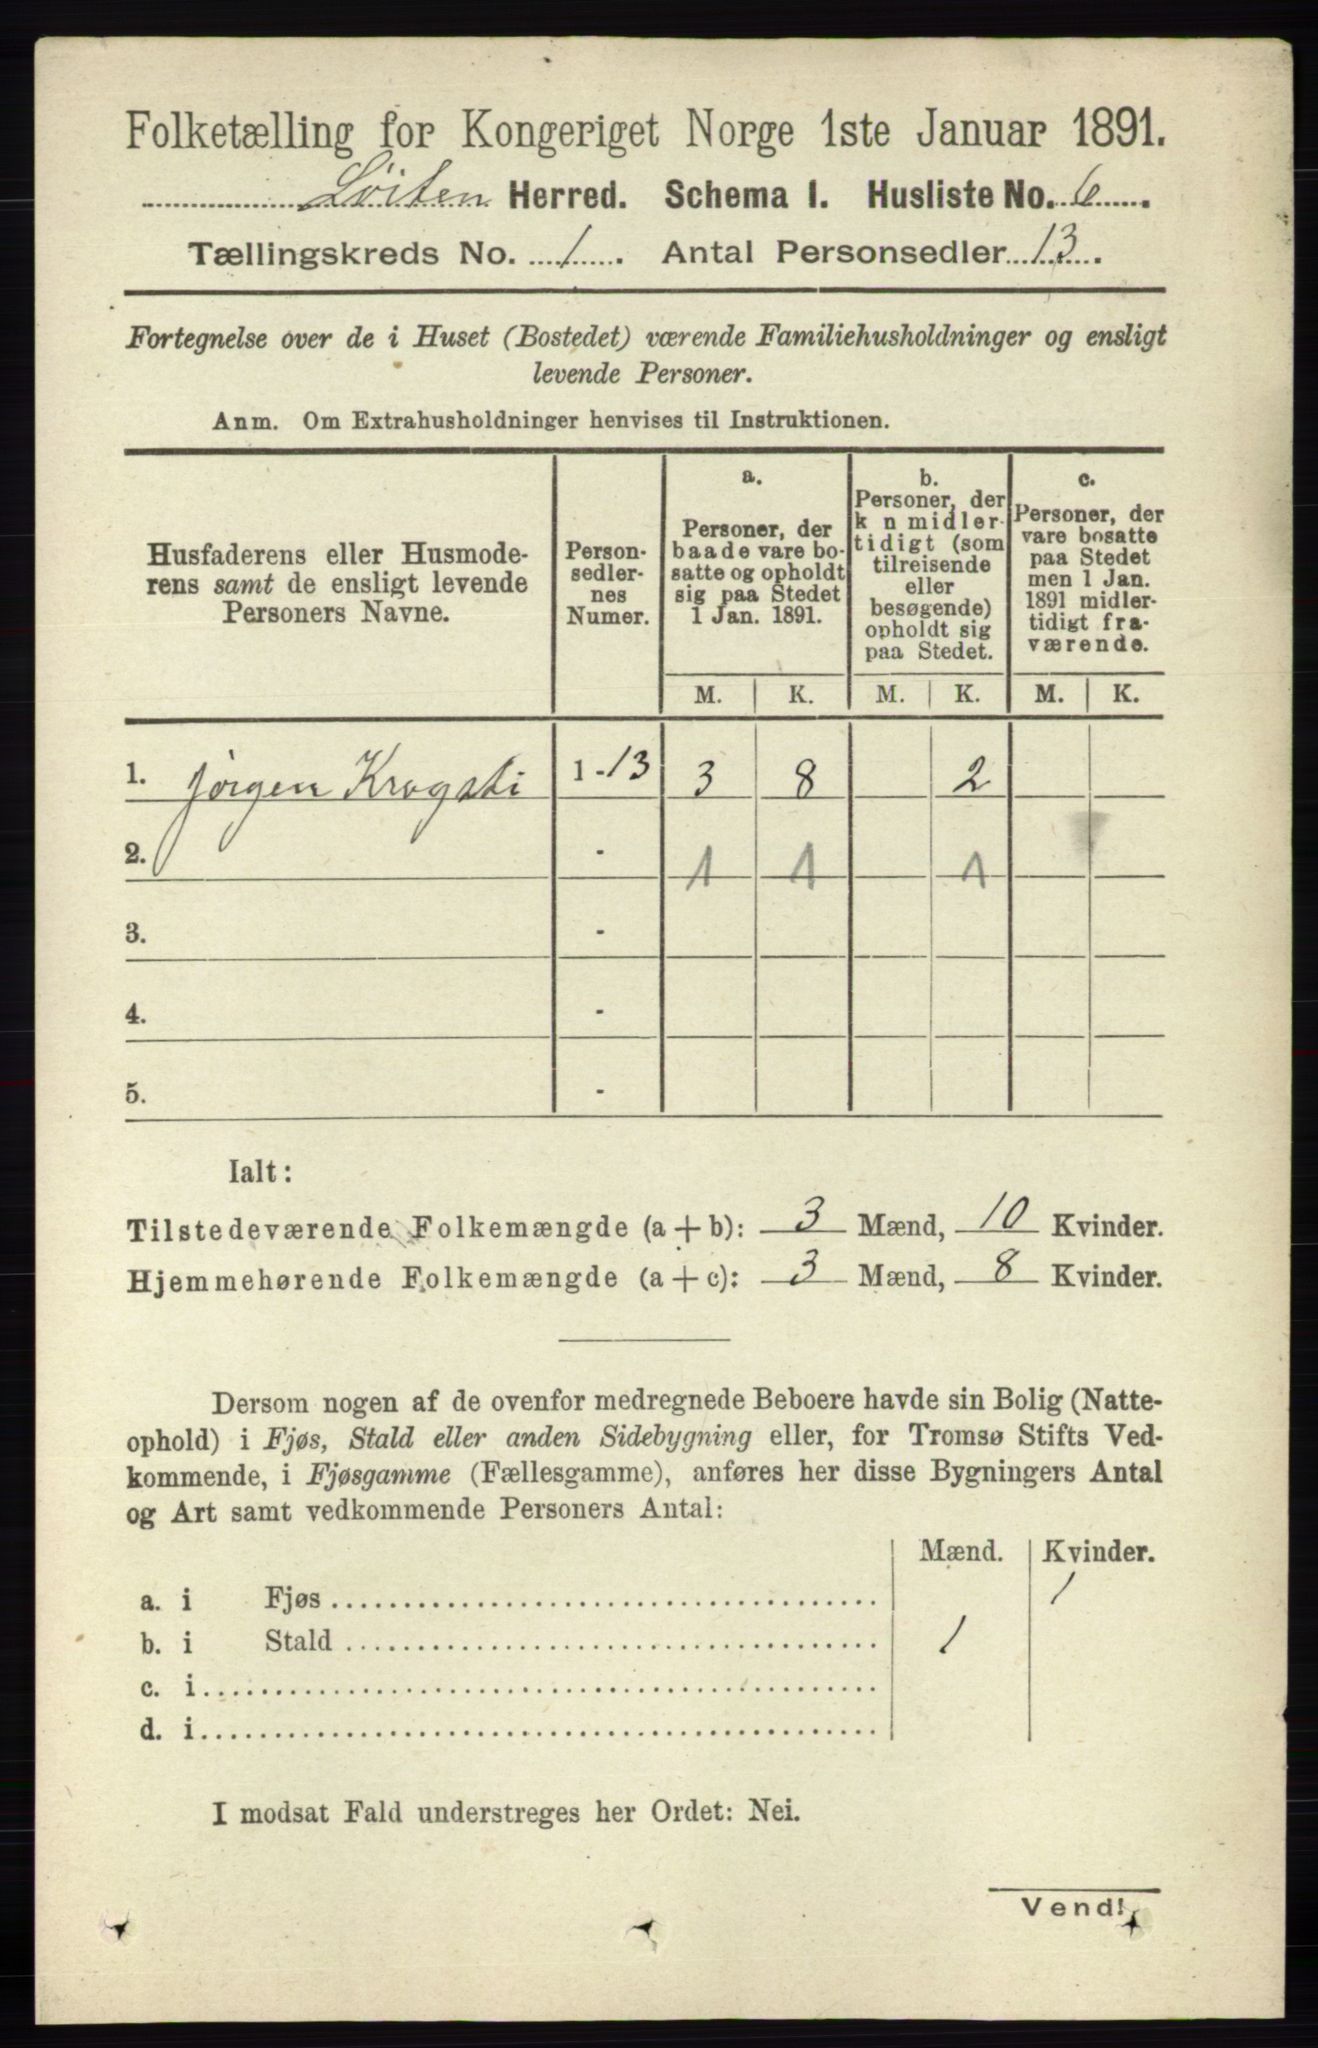 Folketælling for Kongeriget Norge 1ste Januar 1891.
Löiten Herred. Schema I. Husliste No. 6
Tællingskreds No. 1. Antal Personsedler 13.
Fortegnelse over de i Huset (Bostedet) værende Familiehusholdninger og ensligt
levende Personer.
Anm. Om Extrahusholdninger henvises til Instruktionen.
Husfaderens eller Husmode-
rens samt de ensligt levende
Personers Navne.
Person-
sedler-
nes
Numer.
a.
Personer, der
baade vare bo-
satte og opholdt
sig paa Stedet
1 Jan. 1891.
b.
Personer, der
k n midler-
tidigt (som
tilreisende
eller
besøgende)
opholdt sig
paa Stedet.
c.
Personer, der
vare bosatte
paa Stedet
men 1 Jan.
1891 midler-
tidigt fra-
værende.
M. K. M. K. M. K.
1. Jörgen Krogsti 1-13 3 8 2
2. - 1 1 1
3. -
4. -
5. -
Ialt:
Tilstedeværende Folkemængde (a + b): 3 Mænd, 10 Kvinder.
Hjemmehørende Folkemængde (a + c): 3 Mænd, 8 Kvinder.
Dersom nogen af de ovenfor medregnede Beboere havde sin Bolig (Natte-
ophold) i Fjøs, Stald eller anden Sidebygning eller, for Tromsø Stifts Ved-
kommende, i Fjøsgamme (Fællesgamme), anføres her disse Bygningers Antal
og Art samt vedkommende Personers Antal:
Mænd. Kvinder.
a. i Fjøs 1
b. i Stald 1
c. i
d. i
I modsat Fald understreges her Ordet: Nei.
Vend!